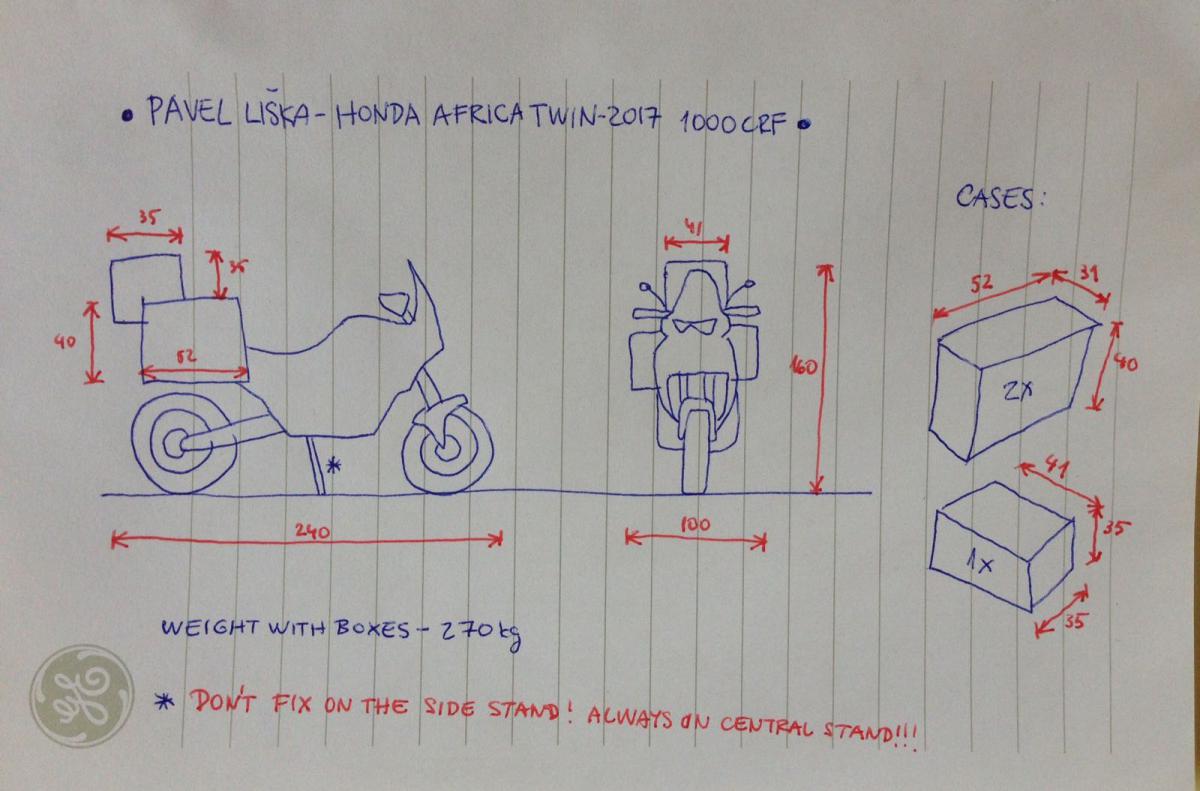 • PAVEL LIŠKA - HONDA AFRICA TWIN-2017 1000CRF •
CASES:
35
35
40
52
240
41
160
100
52
31
40
2x
41
35
35
1x
WEIGHT WITH BOXES - 270kg
* DON'T FIX ON THE SIDE STAND! ALWAYS ON CENTRAL STAND!!!
*
GE